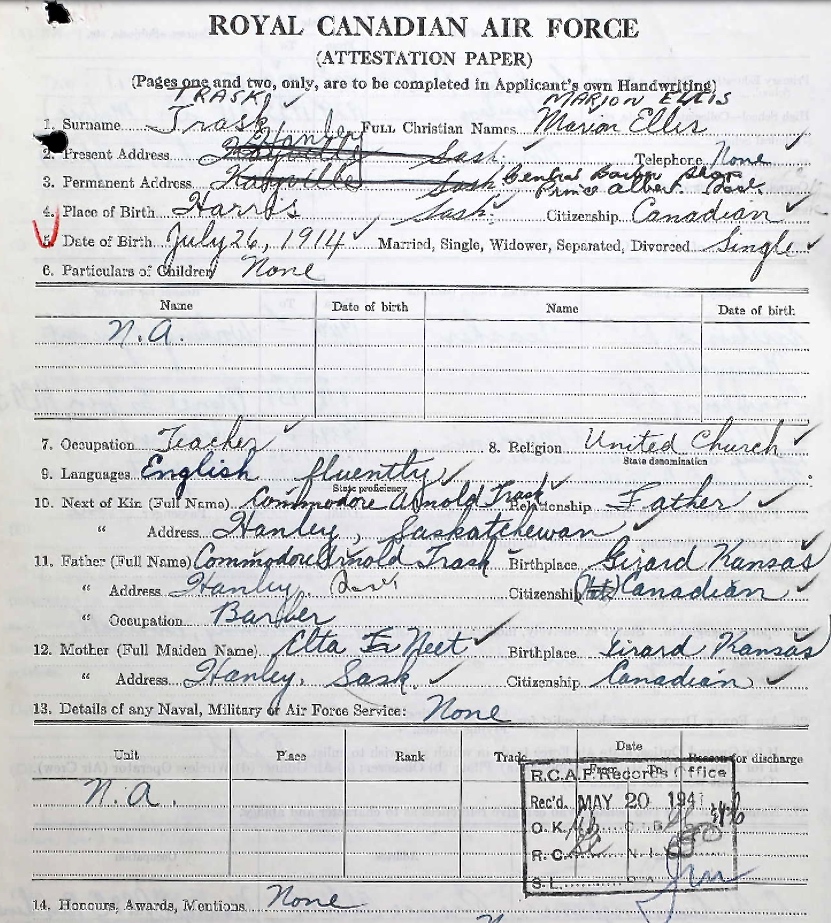 ROYAL CANADIAN AIR FORCE
(ATTESTATION PAPER)
(Pages one and two, only, are to be completed in Applicant's own Handwriting)
TRASK MARION ELLIS
1. Surname Trask Full Christian Names Marion Ellis
Hanley
2. Present Address Kayville Sask. Telephone None
Central Barber Shop
3. Permanent Address Kayville Sask. Prince Albert Sask.
4. Place of Birth Harris Sask. Citizenship Canadian
5. Date of Birth July 26, 1914 Married, Single, Widower, Separated, Divorced Single
6. Particulars of Children None
Name Date of birth Name Date of birth
N.A.
7. Occupation Teacher 8. Religion United Church
State denomination
9. Languages English fluently
State proficiency
10. Next of Kin (Full Name) Commodore Arnold Trask Relationship Father
" Address Hanley, Saskatchewan
11. Father (Full Name) Commodore Arnold Trask Birthplace Girard Kansas
" Address Hanley, Sask Citizenship (Nat) Canadian
" Occupation Barber
12. Mother (Full Maiden Name) Elta Neet Birthplace Girard Kansas
" Address Hanley, Sask. Citizenship Canadian
13. Details of any Naval, Military or Air Force Service: None
Unit Place Rank Trade Date Reason for discharge
From To
N.A.
R.C.A.F. Records Office
Rec'd. MAY 20 1941
O.K.
R.C. N.I.
S.L.
14. Honours, Awards, Mentions None